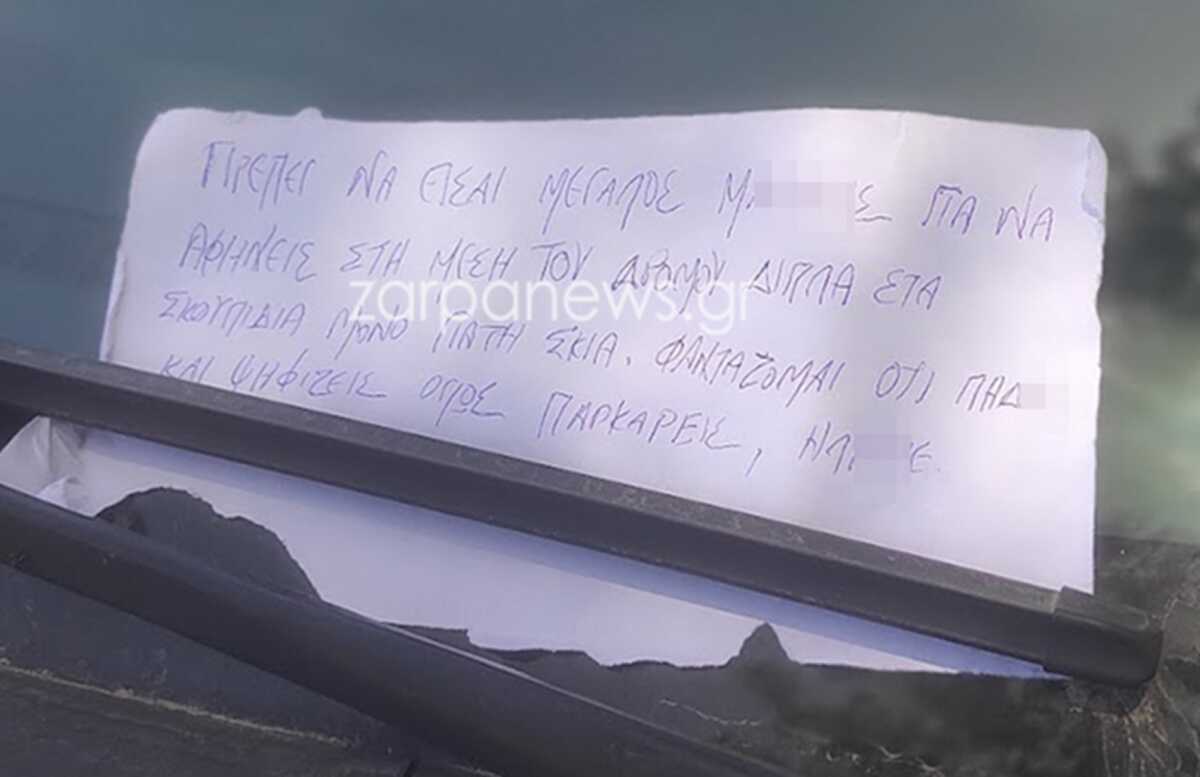 ΠΡΕΠΕΙ ΝΑ ΕΙΣΑΙ ΜΕΓΑΛΟΣ Μ Σ ΓΙΑ ΝΑ
ΑΦΗΝΕΙΣ ΣΤΗ ΜΕΣΗ ΤΟΥ ΔΡΟΜΟΥ ΔΙΠΛΑ ΣΤΑ
zarpanews.gr
ΣΚΟΥΠΙΔΙΑ ΜΟΝΟ ΓΙΑ ΤΗ ΣΚΙΑ. ΦΑΝΤΑΖΟΜΑΙ ΟΤΙ
ΚΑΙ ΨΗΦΙΖΕΙΣ ΟΠΩΣ ΠΑΡΚΑΡΕΙΣ,